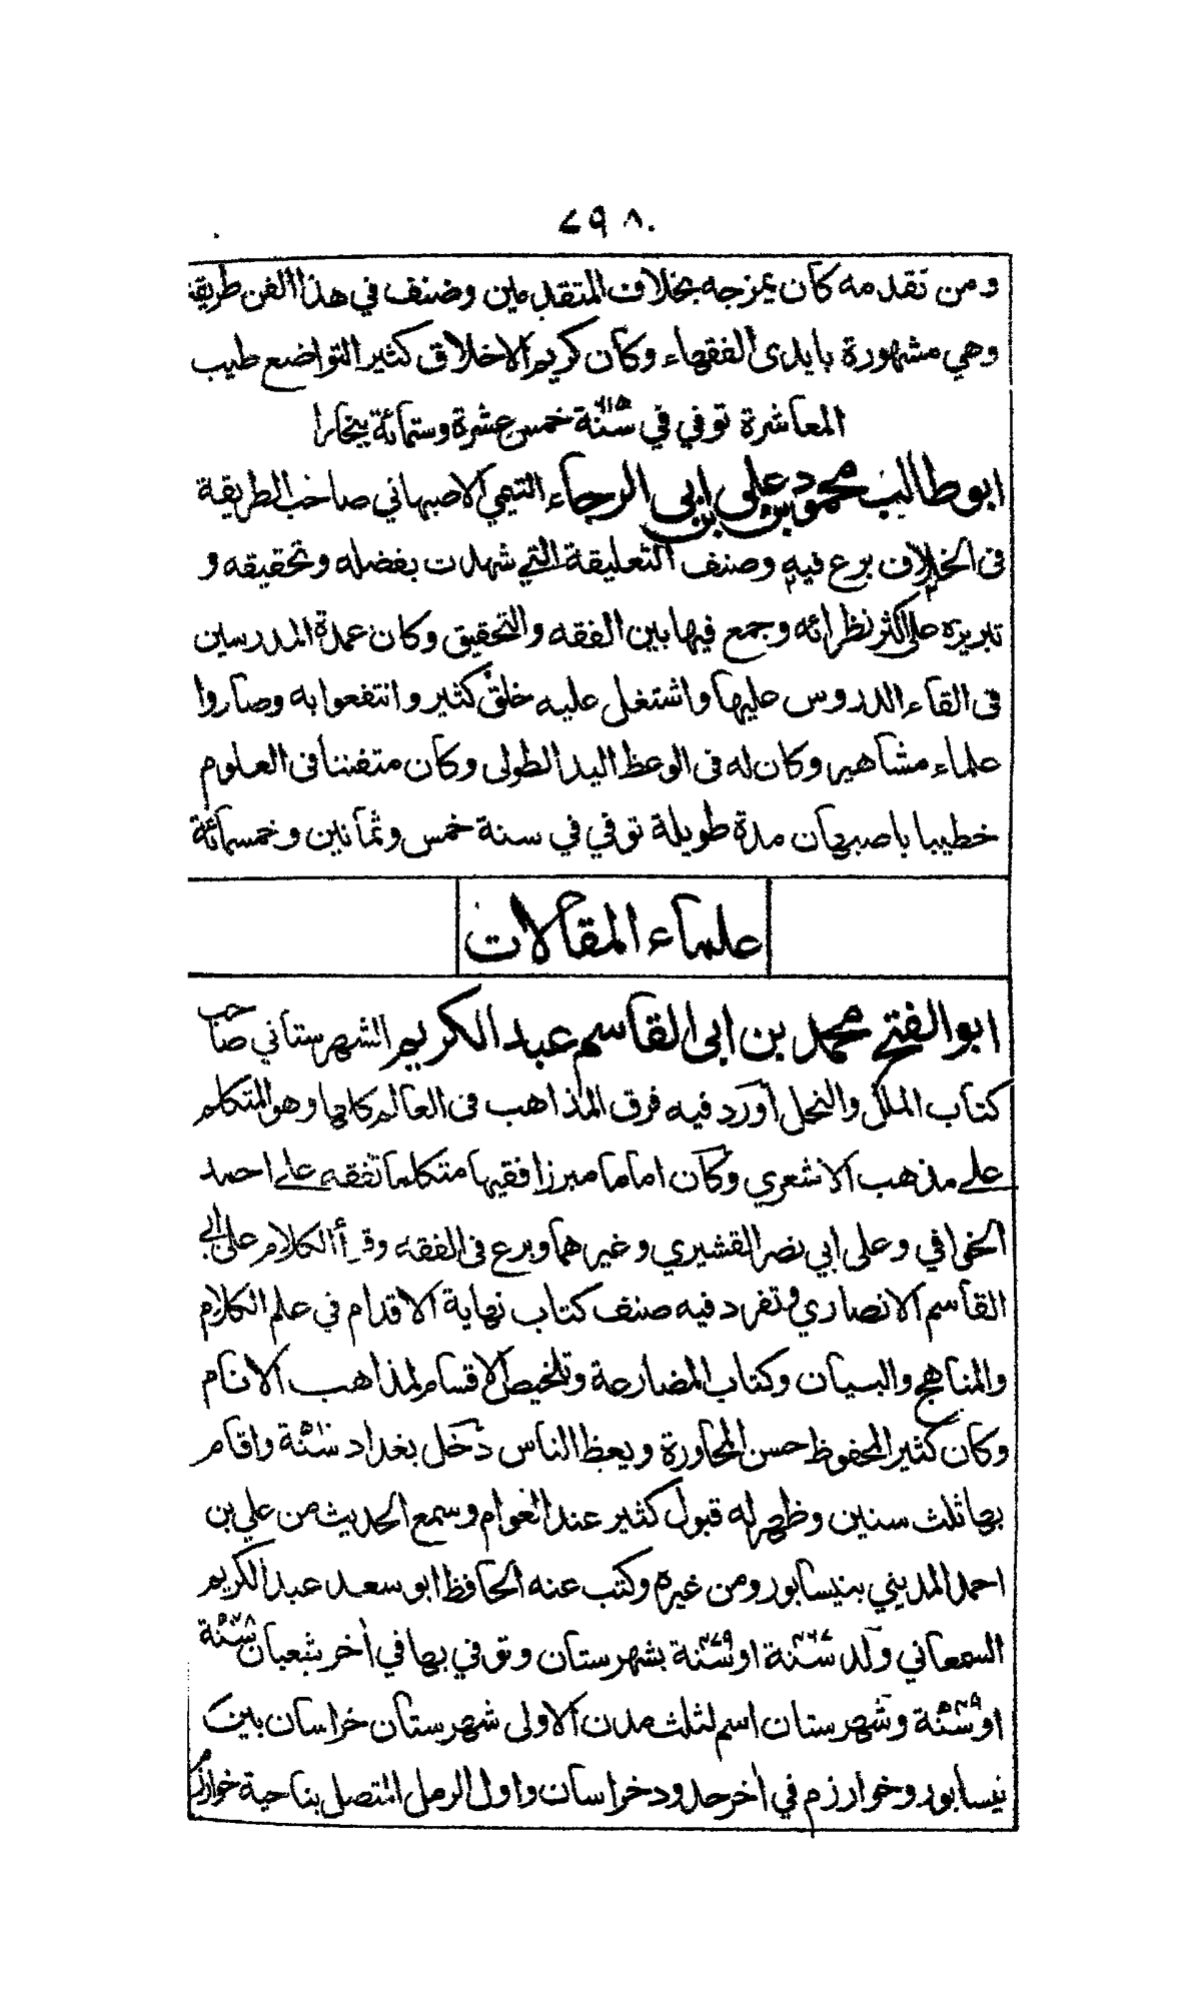 ٧٩٨
ومن تقدمه كان يمزجه بخلاف المتقدمين وصنف في هذا الفن طريقة
وهي مشهورة بايدى الفقهاء وكان كريم الاخلاق كثير التواضع طيب
المعاشرة توفي في سنة ٦١٥ خمس عشرة وستمائة ببخارا
ابو طالب محمود بن علي بن ابي الرجاء التيمي الاصبهاني صاحب الطريقة
في الخلاف برع فيه وصنف التعليقة التي شهدت بفضله وتحقيقه و
تبريزه على اكثر نظرائه وجمع فيها بين الفقه والتحقيق وكان عمدة المدرسين
في القاء الدروس عليها واشتغل عليه خلق كثير وانتفعوا به وصاروا
علماء مشاهير وكان له في الوعظ اليد الطولى وكان متفننا في العلوم
خطيبا باصبهان مدة طويلة توفي في سنة خمس وثمانين وخمسمائة
علماء المقالات
ابو الفتح محمد بن ابي القاسم عبد الكريم الشهرستاني صاحب
كتاب الملل والنحل أورد فيه فرق المذاهب في العالم كلها وهو المتكلم
على مذهب الاشعري وكان اماما مبرزا فقيها متكلما تفقه على احمد
الخوافي وعلى ابي نصر القشيري وغيرهما وبرع في الفقه وقرأ الكلام على ابي
القاسم الانصاري وتفرد فيه صنف كتاب نهاية الاقدام في علم الكلام
والمناهج والبيان وكتاب المضارعة وتلخيص الاقسام لمذاهب الانام
وكان كثير المحفوظ حسن المحاورة ويعظ الناس دخل بغداد سنة واقام
بها ثلث سنين وظهر له قبول كثير عند العوام وسمع الحديث من علي بن
احمد المديني بنيسابور ومن غيره وكتب عنه الحافظ ابو سعد عبد الكريم
السمعاني ولد سنة ٤٦٧ او سنة ٤٧٩ بشهرستان وتوفي بها في أخر شعبان سنة ٥٤٨
او سنة ٥٤٩ وشهرستان اسم لثلث مدن الاولى شهرستان خراسان بين
نيسابور وخوارزم في أخر حدود خراسان واول الرمل المتصل بناحية خوارزم